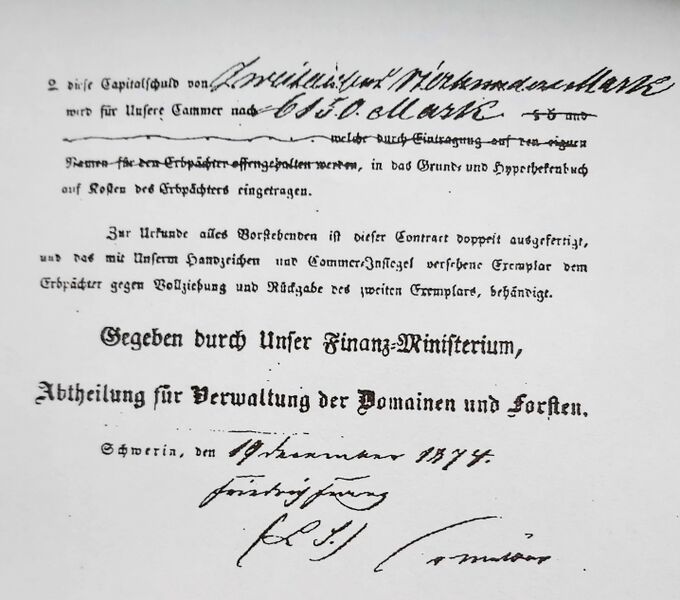 2 diese Capitalschuld von Zweitausend Vierhundert Mark
wird für Unsere Cammer nach 6150. Mark und
welche durch Eintragung auf den eignen
Namen für den Erbpächter offengehalten werden, in das Grund- und Hypothekenbuch
auf Kosten des Erbpächters eingetragen.
Zur Urkunde alles Vorstehenden ist dieser Contract doppelt ausgefertigt,
und das mit Unserm Handzeichen und Cammer-Insiegel versehene Exemplar dem
Erbpächter gegen Vollziehung und Rückgabe des zweiten Exemplars, behändigt.
Gegeben durch Unser Finanz-Ministerium,
Abtheilung für Verwaltung der Domainen und Forsten.
Schwerin, den 19 december 1874.
Friedrich Franz
(L S.)